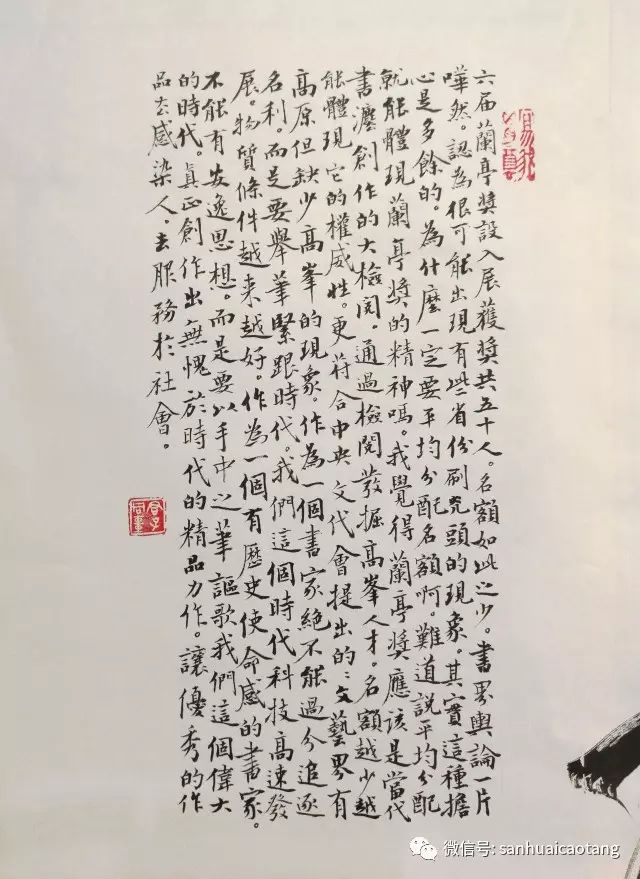 六届蘭亭獎設入展獲獎共五十人。名額如此之少。書界輿論一片
嘩然。認為很可能出現有些省份刷光頭的現象。其實這種擔
心是多餘的。為什麼一定要平均分配名額啊。難道説平均分配
就能體現蘭亭獎的精神嗎。我覺得蘭亭獎應該是當代
書灋創作的大檢閲。通過檢閲發掘高峯人才。名額越少越
能體現它的權威性。更苻合中央文代會提出的：文藝界有
高原但缺少高峯的現象。作為一個書家絶不能過分追逐
名利。而是要舉筆緊跟時代。我們這個時代科技高速發
展。物質條件越来越好。作為一個有歷史使命感的書家。
不能有安逸思想。而是要以手中之筆謳歌我們這個偉大
的時代。真正創作出無愧於時代的精品力作。讓優秀的作
品去感染人。去服務於社會。
微信号: sanhuaicaotang